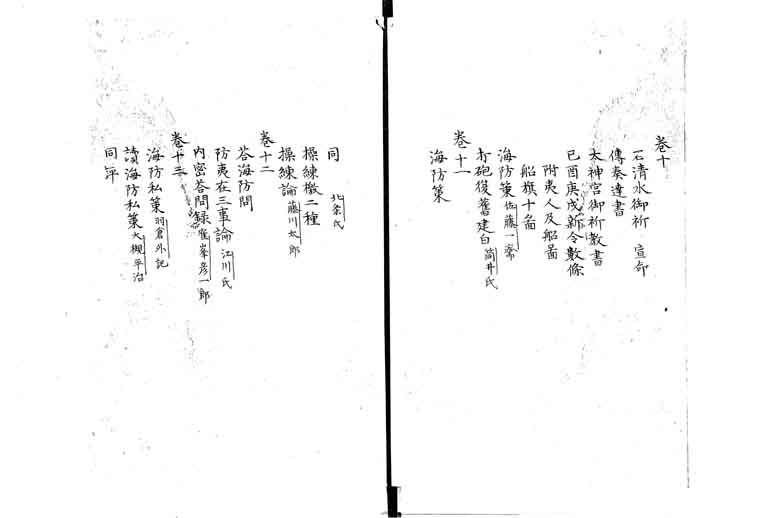 巻十
石清水御祈 宣命
傳奏達書
太神宮御祈教書
己酉庚戌新令數條
附夷人及船圖
船旗十圖
海防策 佐藤一齋
打砲復舊建白 筒井氏
巻十一
海防策
同 北条氏
操練檄二種
操練論 藤川太郎
巻十二
答海防問
防夷在三事論 江川氏
内密答問録 峯彦一郎
巻十三
海防私策 羽倉外記
讀海防私策 大槻平治
同評